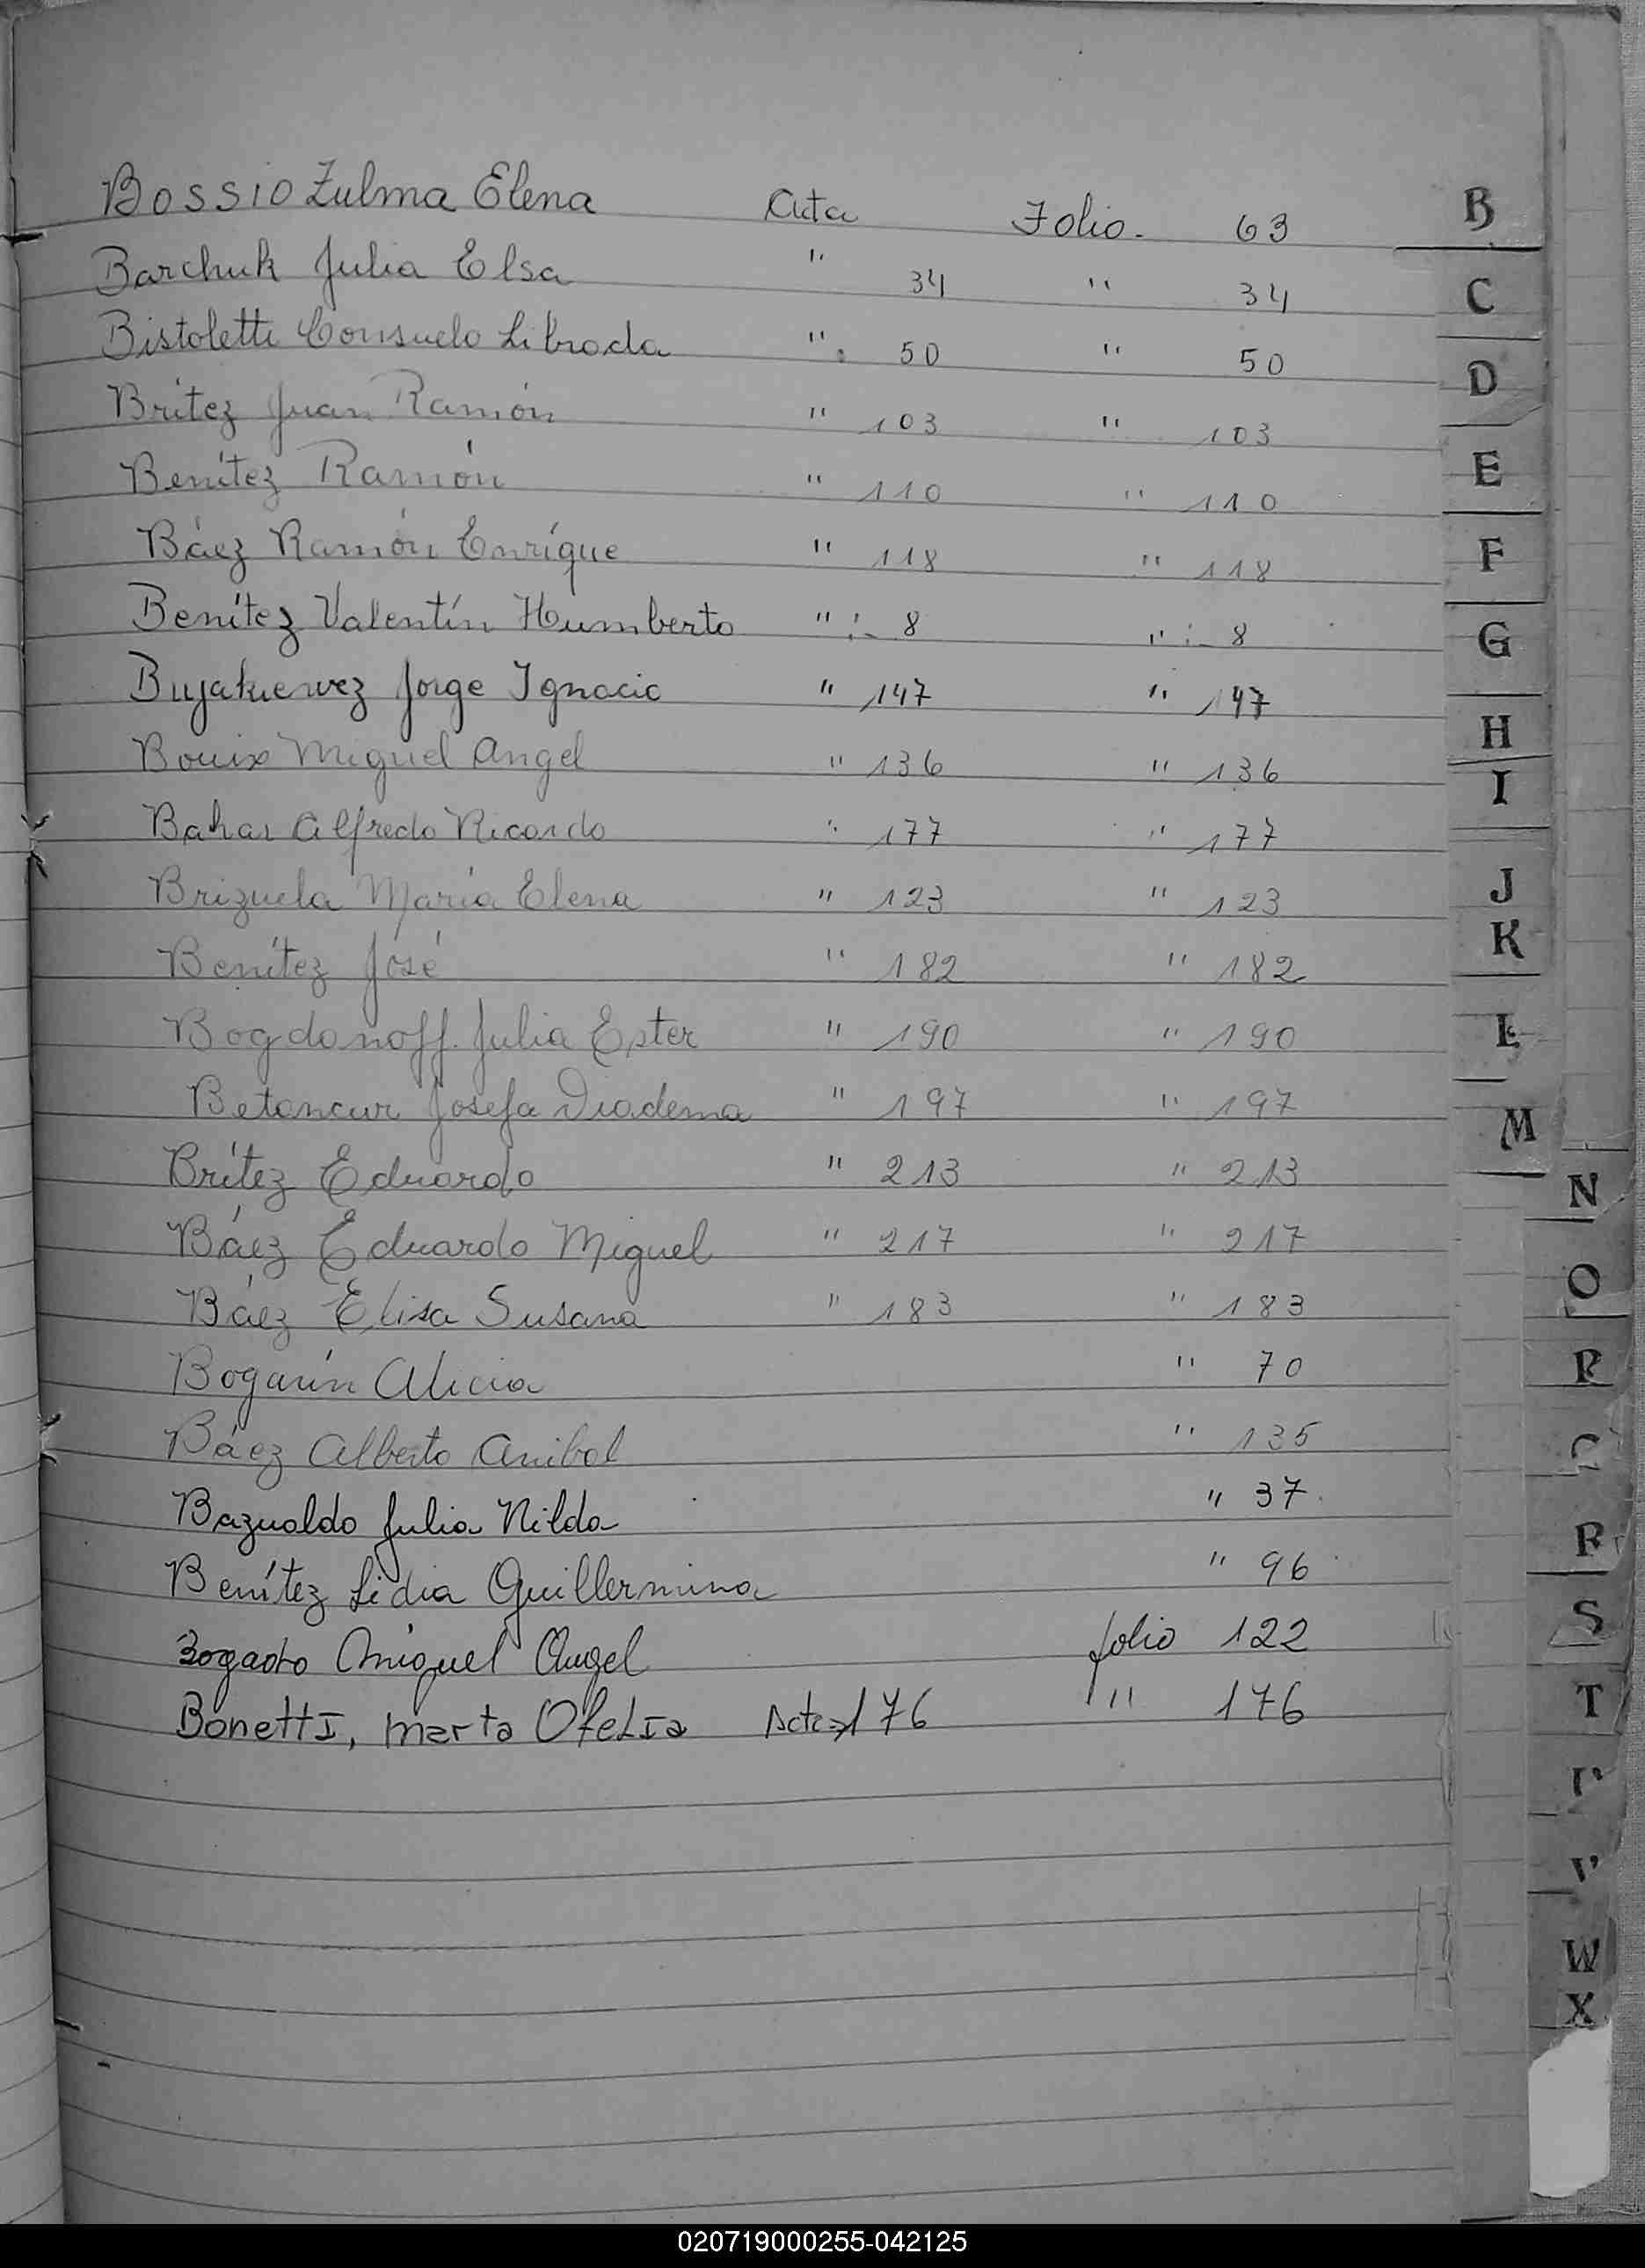 Bossio Zulma Elena Acta Folio. 63 B
Barchuk Julia Elsa " 34 " 34 C
Bistoletti Consuelo Librada " 50 " 50 D
Brítez Juan Ramón " 103 " 103
Benítez Ramón " 110 " 110 E
Báez Ramón Enríque " 118 " 118 F
Benítez Valentín Humberto " : 8 " : 8 G
Buyakievvez Jorge Ignacio " 147 " 147 H
Bouix Miguel Angel " 136 " 136 I
Bahar Alfredo Ricardo " 177 " 177
Brizuela María Elena " 123 " 123 J
Benítez José " 182 " 182 K
Bogdanoff Julia Ester " 190 " 190 L
Betancur Josefa Diadema " 197 " 197 M
Brítez Eduardo " 213 " 213 N
Báez Eduardo Miguel " 217 " 217
Báez Elisa Susana " 183 " 183 O
Bogarín Alicia " 70 P
Báez Alberto Anibal " 135
Bazualdo Julia Nilda " 37 R
Benítez Lidia Guillermina " 96
Bogado Miguel Angel folio 122 S
Bonetti, Marta Ofelia Acta 176 " 176 T
V
W
X
020719000255-042125